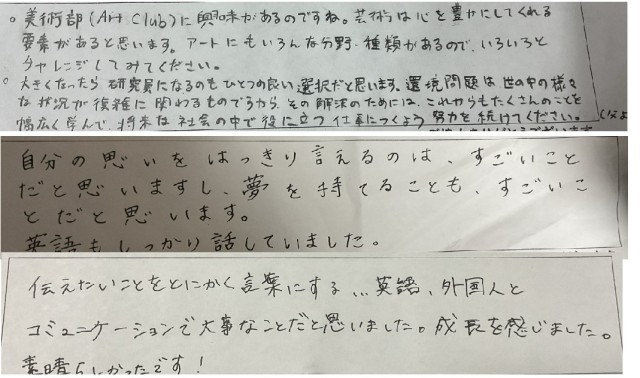 ○ 美術部(Art Club)に興味があるのですね。芸術は心を豊かにしてくれる
要素があると思います。アートにもいろんな分野・種類があるので、いろいろと
チャレンジしてみてください。
○ 大きくなったら研究員になるのもひとつの良い選択だと思います。環境問題は、世の中の様々
な状況が複雑に関わるものですから、その解決のためには、これからもたくさんのことを
幅広く学んで、将来は社会の中で役に立つ仕事につくよう努力を続けてください。
自分の思いをはっきり言えるのは、すごいこと
だと思いますし、夢を持てることも、すごいこ
とだと思います。
英語もしっかり話していました。
伝えたいことをとにかく言葉にする...英語、外国人と
コミュニケーションで大事なことだと思いました。成長を感じました。
素晴らしかったです!